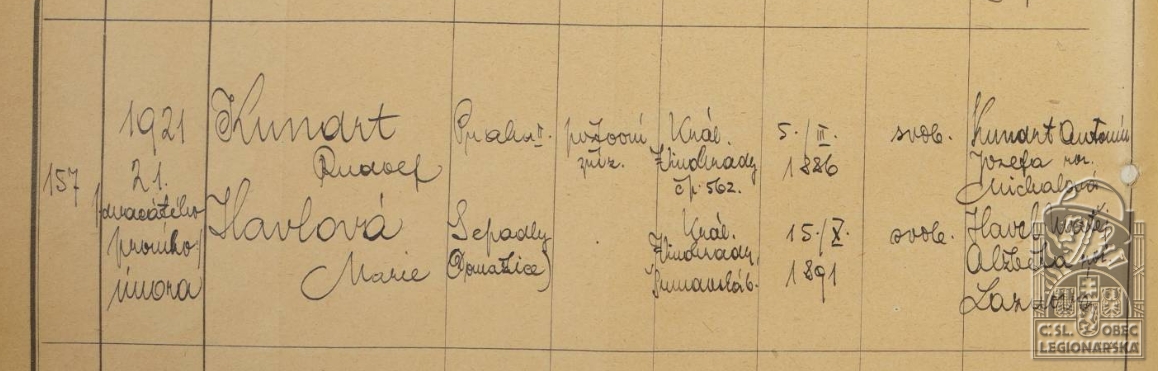 157
1921
21.
dvacátého
prvního
února
Kunart
Rudolf
Havlová
Marie
Praha II.
Sepadly
(Domažlice)
požární
zříz.
Král.
Vinohrady
čp. 562.
Král.
Vinohrady,
5./III.
1886
15./X.
1891
svob.
svob.
Kunart Antonín
Josefa roz.
Michalová
Havel Matěj
Alžběta roz.
ČSL. OBEC
LEGIONÁŘSKÁ